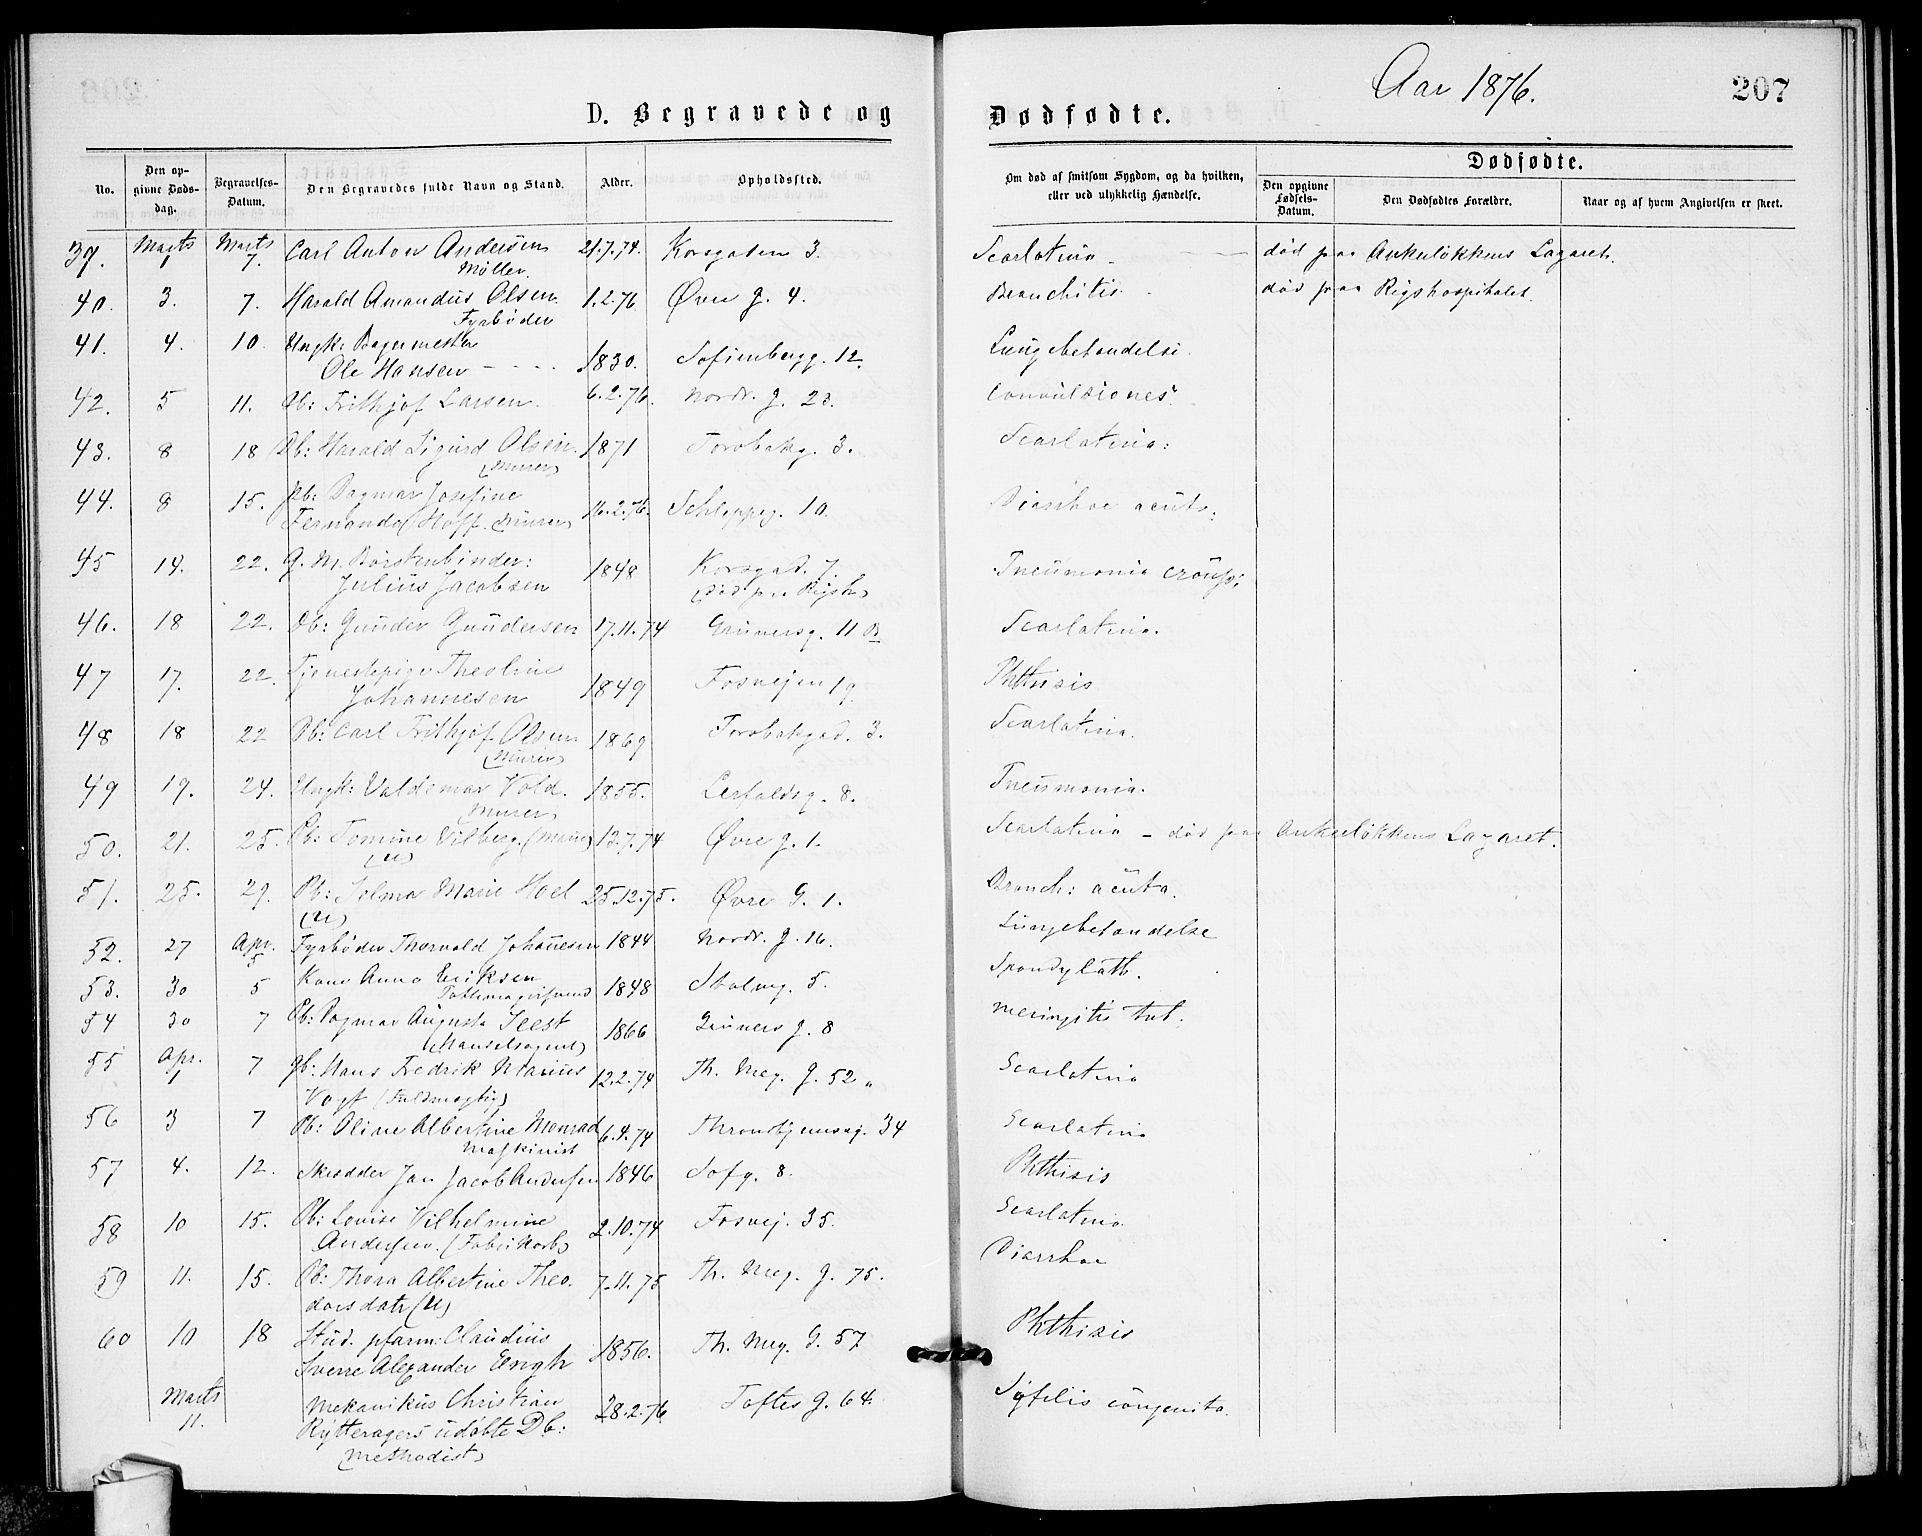 Aar 1876.
207
D. Begravede og
Dødfødte.
No.
Den opgivne Dødsdag.
Begravelses-Datum.
Den Begravedes fulde Navn og Stand.
Alder.
Opholdssted.
Om død af smitsom Sygdom, og da hvilken, eller ved ulykkelig Hændelse.
Dødfødte.
Den opgivne Fødsels-Datum.
Den Dødfødtes Forældre.
Naar og af hvem Angivelsen er skeet.
39. Marts 1 Marts 7. Carl Anton Andersen 21.7.74. Korsgaden 3. Scarlatina død paa Ankerløkkens Lazaret.
Møller.
40. 3. 7. Harald Amandus Olsen 1.2.76 Øvre g. 4. Bronchitis. død paa Rigshospitalet
Fyrbøder
41. 4. 10. Ungk: Bagermester
Ole Hansen 1830. Sofienbergg. 12. Lungebetændelse.
42. 5 11. Db: Frithjof Larsen. 6.2.76. Nordr. g. 23. Convulsiones
43. 8 18 Db: Harald Sigurd Olsen. 1871 Torvbakg. 3. Scarlatina:
(Murer)
44. 8 15. Pb: Dagmar Josefine
Fernanda Hoff. (Murer) 16.2.76. Schleppeg. 10. Diarrhoe acuta:
45 14. 22. G. M. Børstenbinder:
Julius Jacobsen 1848 Korsgad. 7. Pneumonia croup:
(død paa Rigsh)
46. 18 22. Db: Gunder Gundersen 17.11.74 Grünersg. 11 B Scarlatina.
47 17. 22. Tjenestepige Theoline
Johannesen 1849 Fosvejen 19. Phthisis
48 18 22 Db: Carl Frithjof Olsen 1869 Torvbakgad. 3. Scarlatina.
(Murer)
49 19. 24. Ungk: Valdemar Vold. 1855. Lerfaldsg. 8. Pneumonia.
(Murer)
50. 21. 25. Pb: Tomine Vilberg. (Murer) 13.7.74 Øvre g. 1. Scarlatina – død paa Ankerløkkens Lazaret.
(U)
51. 25. 29. Pb: Selma Marie Hoel 25.12.75. Øvre G. 1. Bronch: acuta.
(U)
52. 27 Apr. 5 Fyrbøder Thorvald Johannesen 1844 Nordr. g. 16. Lungebetændelse
53. 30 5 Kone Anna Eriksen 1848 Stolmg. 5.
54 30 7 Pb: Dagmar Augusta Seest 1866 Grüners g. 8 Meningitis tub.
(Handelsagent)
55 Apr. 1 7 Gb: Hans Fredrik Marius 12.2.74 Th. Mey. g. 52 Scarlatina
Vogt (Fuldmægtig)
56 3 7 Pb: Oline Albertine Monrad 6.4.74 Throndhjemsvej. 34 Scarlatina
Maskinist
57 4. 12. Skrædder Jan Jacob Andersen 1846 Sofg. 8. Phthisis
58 10 15. Pb: Lovise Vilhelmine
Andersen. (Fabrikarb) 2.10.74 Fosvej. 35. Scarlatina.
59 11. 15. Pb: Thora Albertine Theo- 7.11.75 Th. Mey. g. 75. Diarrhoe
dorsdatr (U)
60 10 18 Stud. pharm: Claudius
Sverre Alexander Engh 1856. Th. Mey. G. 57 Phthisis
Marts 11. Mekanikus Christian 28.2.76 Toftes G. 64. Syfilis congenita.
Rytteragers udøbte Db:
(Methodist)